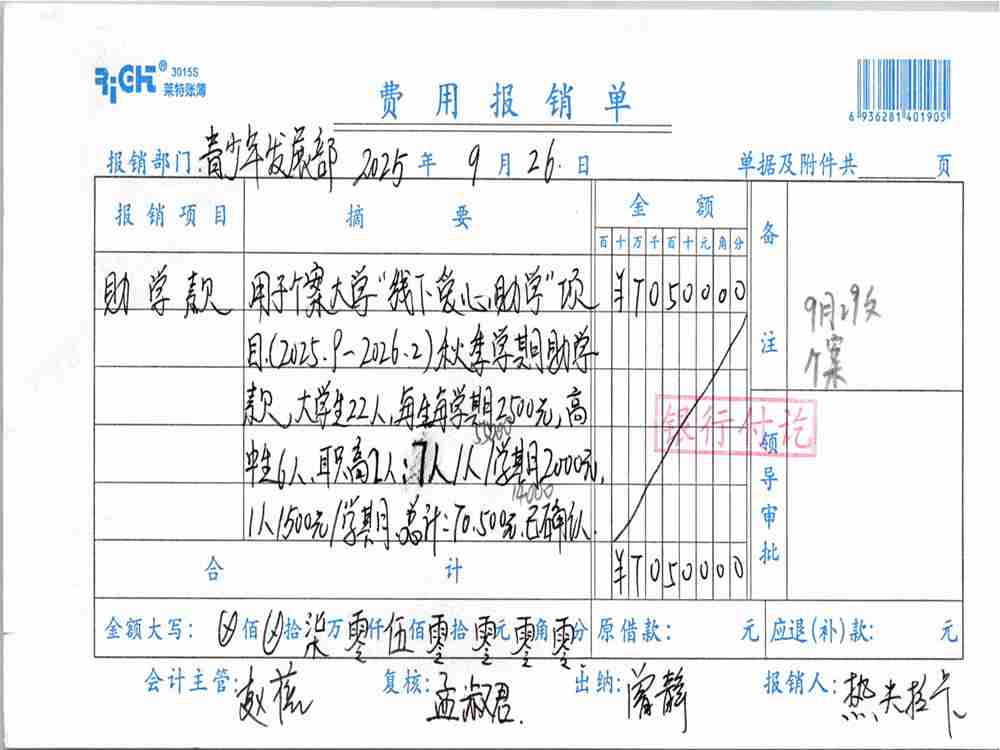 RiGHT® 3015S
莱特账簿
费用报销单
6 936281 401905
报销部门:青少年发展部 2025年 9月26日 单据及附件共 页
报销项目 摘要 金额 备注
百十万千百十元角分
助学款 用于个案大学“线下爱心助学”项 ¥7050000
目(2025.9-2026.2)秋季学期助学
款,大学生22人,每生每学期2500元,高
55000
中生6人、职高2人:7人/人/学期2000元,
14000
1人1500元/学期.总计:70.500元.已确认.
9月29文
个案
银行付讫
领导审批
合计 ¥7050000
金额大写:⊗佰⊗拾柒万零仟伍佰零拾零元零角零分 原借款: 元 应退(补)款: 元
会计主管: 复核:孟淑君. 出纳:曾静 报销人: